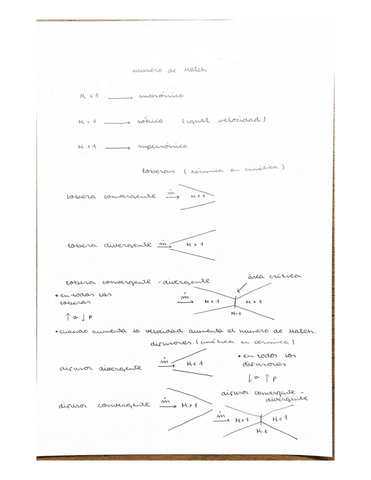 numero de Match
M < 1 → subsónico
M = 1 → sónico (igual velocidad)
M > 1 → supersónico
toberas (térmica en cinética)
tobera convergente ṁ → M < 1
tobera divergente ṁ → M > 1
tobera convergente - divergente
área crítica
• en todas las
toberas
ṁ → M < 1 M > 1
↑ v ↓ p
• cuando aumenta la velocidad aumenta el numero de Match.
difusores (cinética en térmica)
difusor divergente ṁ → M < 1
• en todos los
difusores
↓ v ↑ p
difusor convergente -
divergente
difusor convergente ṁ → M > 1
ṁ → M > 1 M < 1
M=1